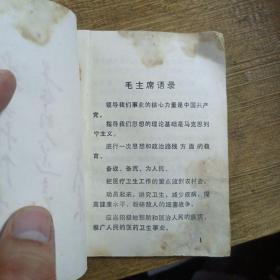 毛主席语录
领导我们事业的核心力量是中国共产
党。
指导我们思想的理论基础是马克思列
宁主义。
进行一次思想和政治路线方面的教
育。
备战、备荒、为人民。
把医疗卫生工作的重点放到农村去。
动员起来，讲究卫生，减少疾病，提
高健康水平，粉碎敌人的细菌战争。
应当积极地预防和医治人民的疾病，
推广人民的医药卫生事业。
1